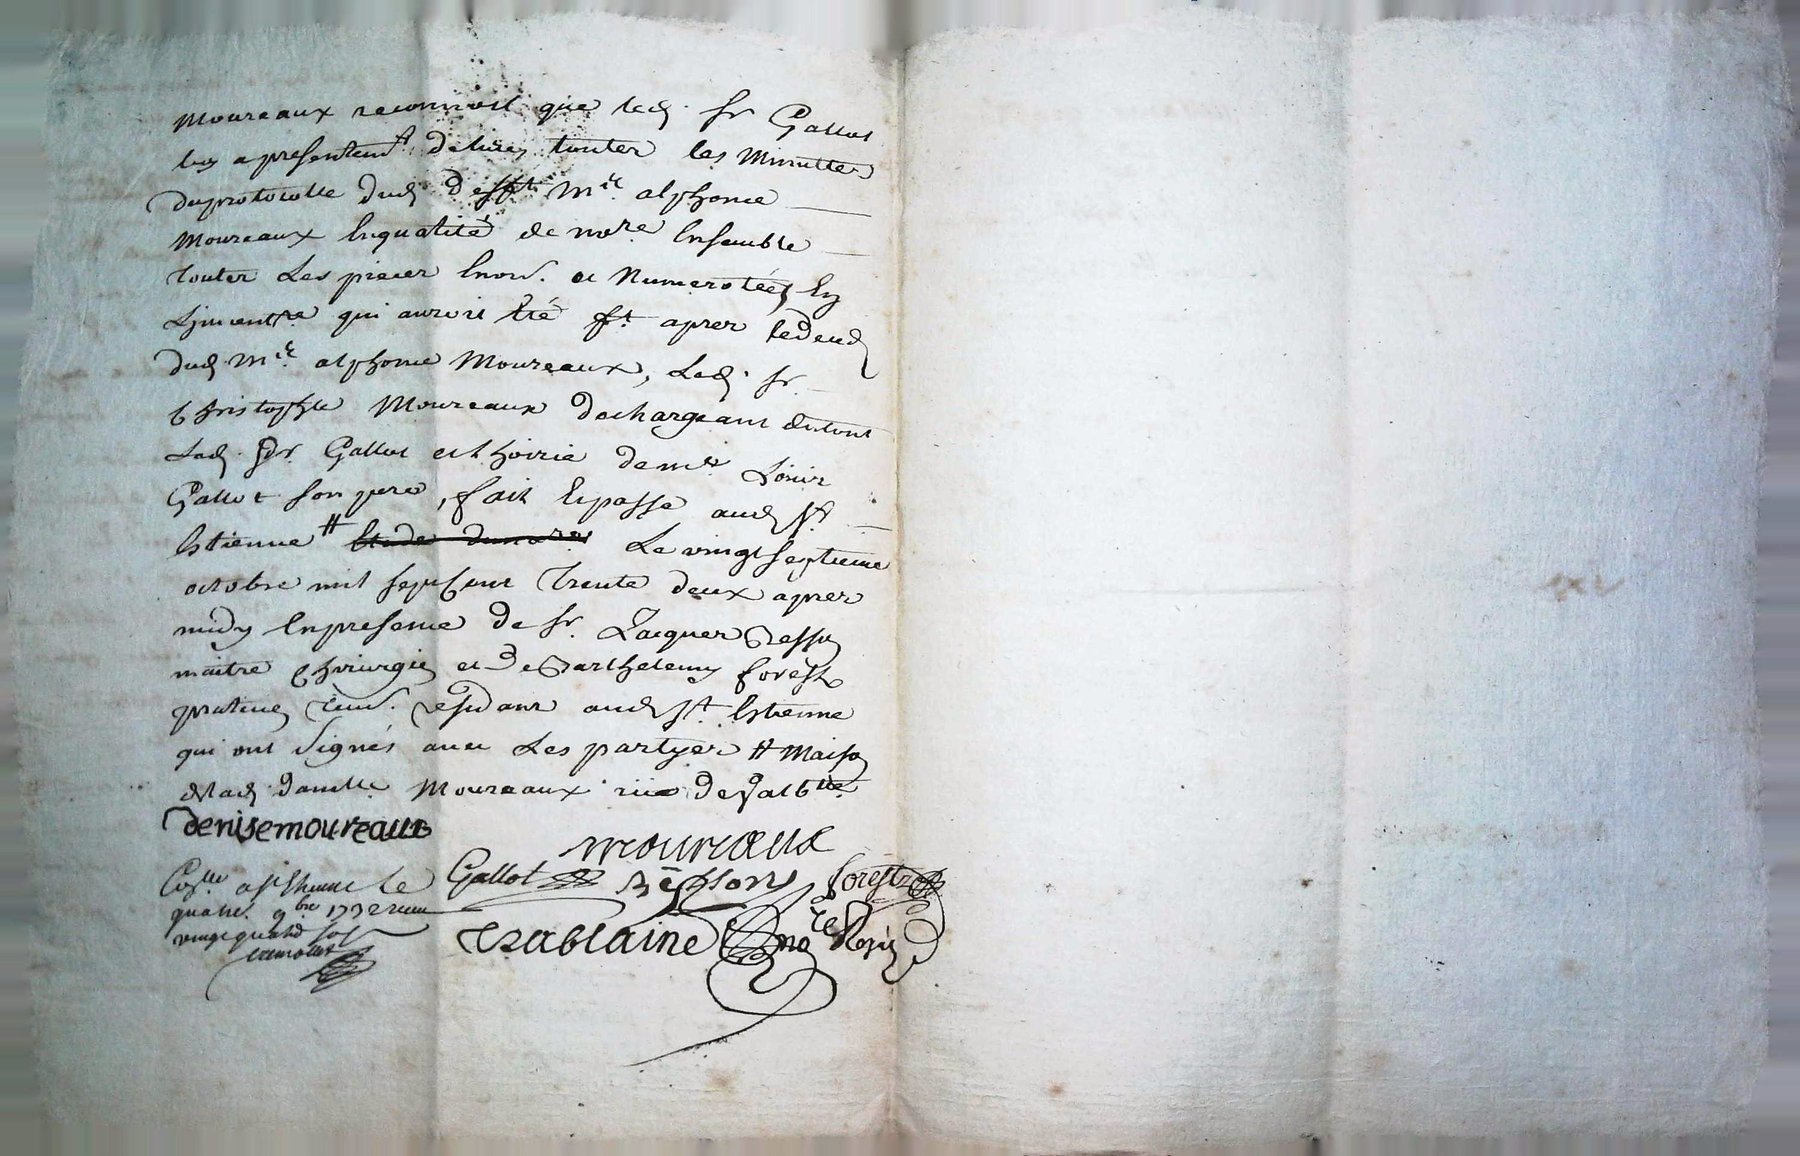 Moureaux reconnoit que led. sr Gallot
luy a presentemt delivré toutes les Minuttes
du protocolle dud defft Mre. alphonse
Moureaux en qualité de nore Ensemble
toutes Les pieces Enon. et Numerotées En
Linventre qui auroit Eté ft apres ledeced
dud. Mre. alphonse Moureaux, Led. sr
Christophle Moureaux dechargeant du tout
Led. Sr. Gallot et hoirie de mre Louis
Gallot son pere, fait Et passé aud St.
Estienne # Etude du nore Le vingt septieme
octobre mil sept cent trente deux apres
midy En presence de sr. Jacques Besson
maitre Chirurgien et de Barthelemy forest
praticien resident aud St. Estienne
qui ont Signés avec Les partyes # Maison
de lad. damlle. Moureaux rüe de
denise moureaux
moureaux
Gallot Besson forest
Conlle a st Etienne le
quatre 9bre 1732 receu
vingt quatre sols
Trablaine nore Royal